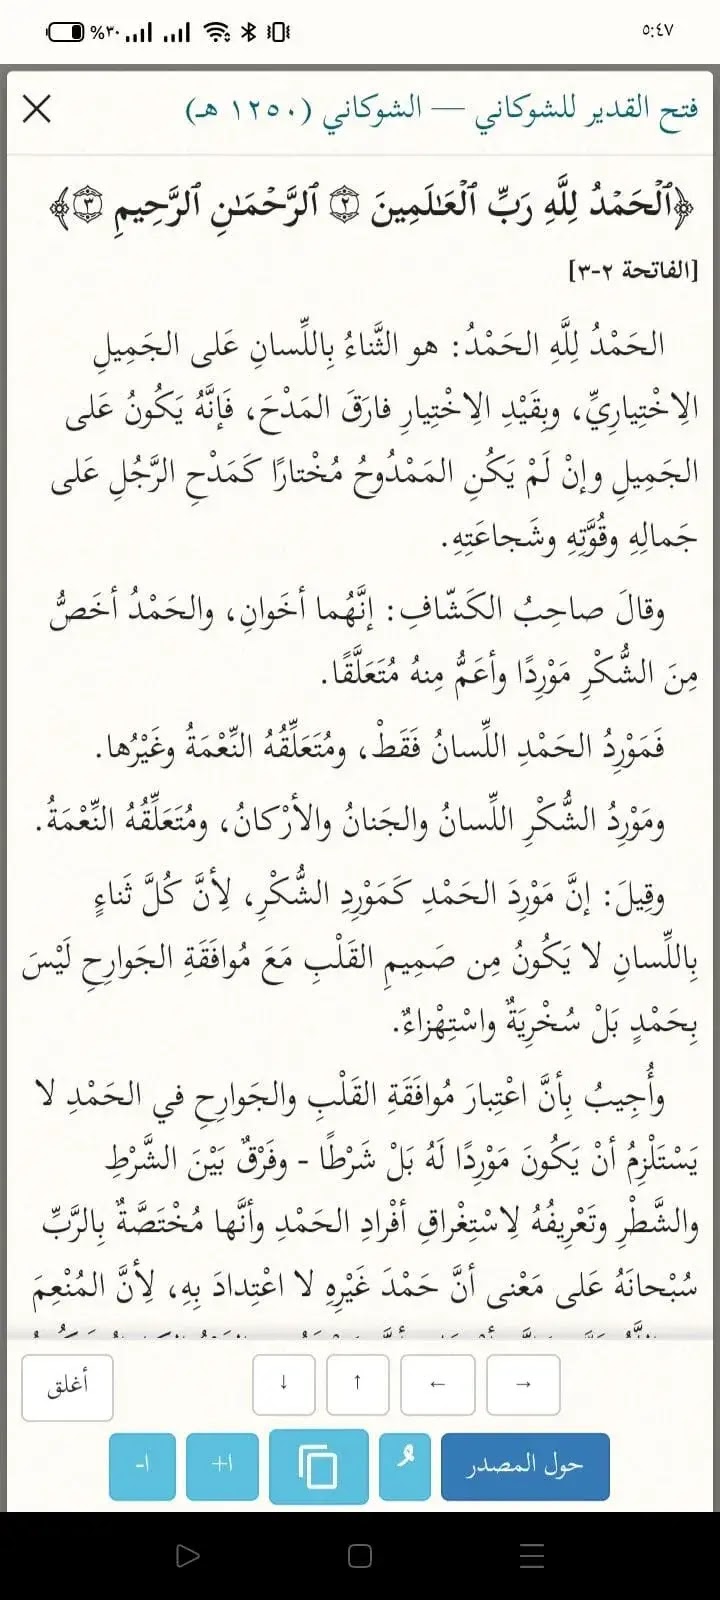 %٣٠ ٥:٤٧
فتح القدير للشوكاني — الشوكاني (١٢٥٠ هـ)
﴿ٱلۡحَمۡدُ لِلَّهِ رَبِّ ٱلۡعَـٰلَمِینَ ۝٢ ٱلرَّحۡمَـٰنِ ٱلرَّحِیمِ ۝٣﴾
[الفاتحة ٢-٣]
الحَمْدُ لِلَّهِ الحَمْدُ: هو الثَّناءُ بِاللِّسانِ عَلى الجَمِيلِ
الِاخْتِيارِيِّ، وبِقَيْدِ الِاخْتِيارِ فارَقَ المَدْحَ، فَإنَّهُ يَكُونُ عَلى
الجَمِيلِ وإنْ لَمْ يَكُنِ المَمْدُوحُ مُخْتارًا كَمَدْحِ الرَّجُلِ عَلى
جَمالِهِ وقُوَّتِهِ وشَجاعَتِهِ.
وقالَ صاحِبُ الكَشّافِ: إنَّهُما أخَوانِ، والحَمْدُ أخَصُّ
مِنَ الشُّكْرِ مَوْرِدًا وأعَمُّ مِنهُ مُتَعَلَّقًا.
فَمَوْرِدُ الحَمْدِ اللِّسانُ فَقَطْ، ومُتَعَلِّقُهُ النِّعْمَةُ وغَيْرُها.
ومَوْرِدُ الشُّكْرِ اللِّسانُ والجَنانُ والأرْكانُ، ومُتَعَلِّقُهُ النِّعْمَةُ.
وقِيلَ: إنَّ مَوْرِدَ الحَمْدِ كَمَوْرِدِ الشُّكْرِ، لِأنَّ كُلَّ ثَناءٍ
بِاللِّسانِ لا يَكُونُ مِن صَمِيمِ القَلْبِ مَعَ مُوافَقَةِ الجَوارِحِ لَيْسَ
بِحَمْدٍ بَلْ سُخْرِيَةٌ واسْتِهْزاءٌ.
وأُجِيبُ بِأنَّ اعْتِبارَ مُوافَقَةِ القَلْبِ والجَوارِحِ في الحَمْدِ لا
يَسْتَلْزِمُ أنْ يَكُونَ مَوْرِدًا لَهُ بَلْ شَرْطًا - وفَرْقٌ بَيْنَ الشَّرْطِ
والشَّطْرِ وتَعْرِيفُهُ لِاسْتِغْراقِ أفْرادِ الحَمْدِ وأنَّها مُخْتَصَّةٌ بِالرَّبِّ
سُبْحانَهُ عَلى مَعْنى أنَّ حَمْدَ غَيْرِهِ لا اعْتِدادَ بِهِ، لِأنَّ المُنْعِمَ
→ ← ↑ ↓ أغلق
حول المصدر ا+ ا-